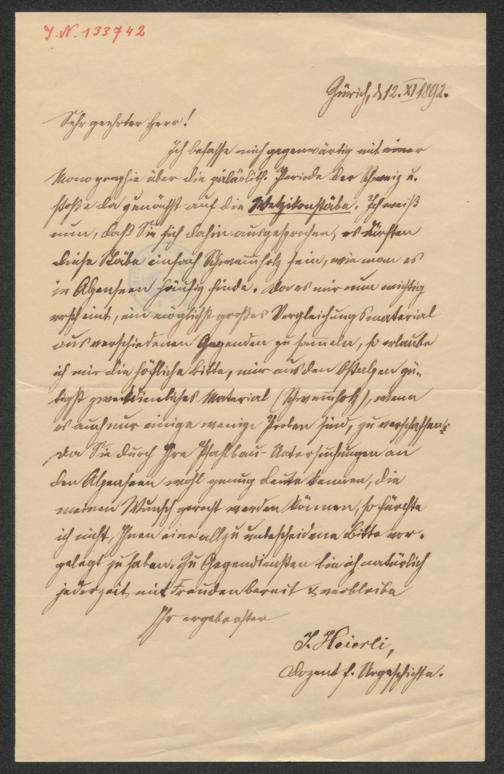 J. N. 133742
Zürich, d 12. XI 1892.
Sehr geehrter Herr!
Ich befasse mich gegenwärtig mit einer
Monographie über die paläolith. Periode der Schweiz u.
stoße da zunächst auf die Wetzikonstäbe. Ich weiß
nun, daß Sie sich dahin ausgesprochen, es dürften
diese Stäbe einfach Schwemmholz sein, wie man es
in Alpenseen häufig finde. Da es mir nun wichtig
erscheint, ein möglichst großes Vergleichungsmaterial
aus verschiedenen Gegenden zu sammeln, so erlaube
ich mir die höfliche Bitte, mir aus den Ostalpen gü-
tigst zweckdienliches Material (Schwemmholz), wenn
es auch nur einige wenige Proben sind, zu verschaffen.
Da Sie durch Ihre Pfahlbau-Untersuchungen an
den Alpenseen wohl genug Leute kennen, die
meinem Wunsch gerecht werden können, so fürchte
ich nicht, Ihnen eine allzu unbescheidene Bitte vor-
gelegt zu haben. Zu Gegendiensten bin ich natürlich
jederzeit mit Freuden bereit & verbleibe
Ihr ergebenster
J. Heierli,
Dozent f. Urgeschichte.